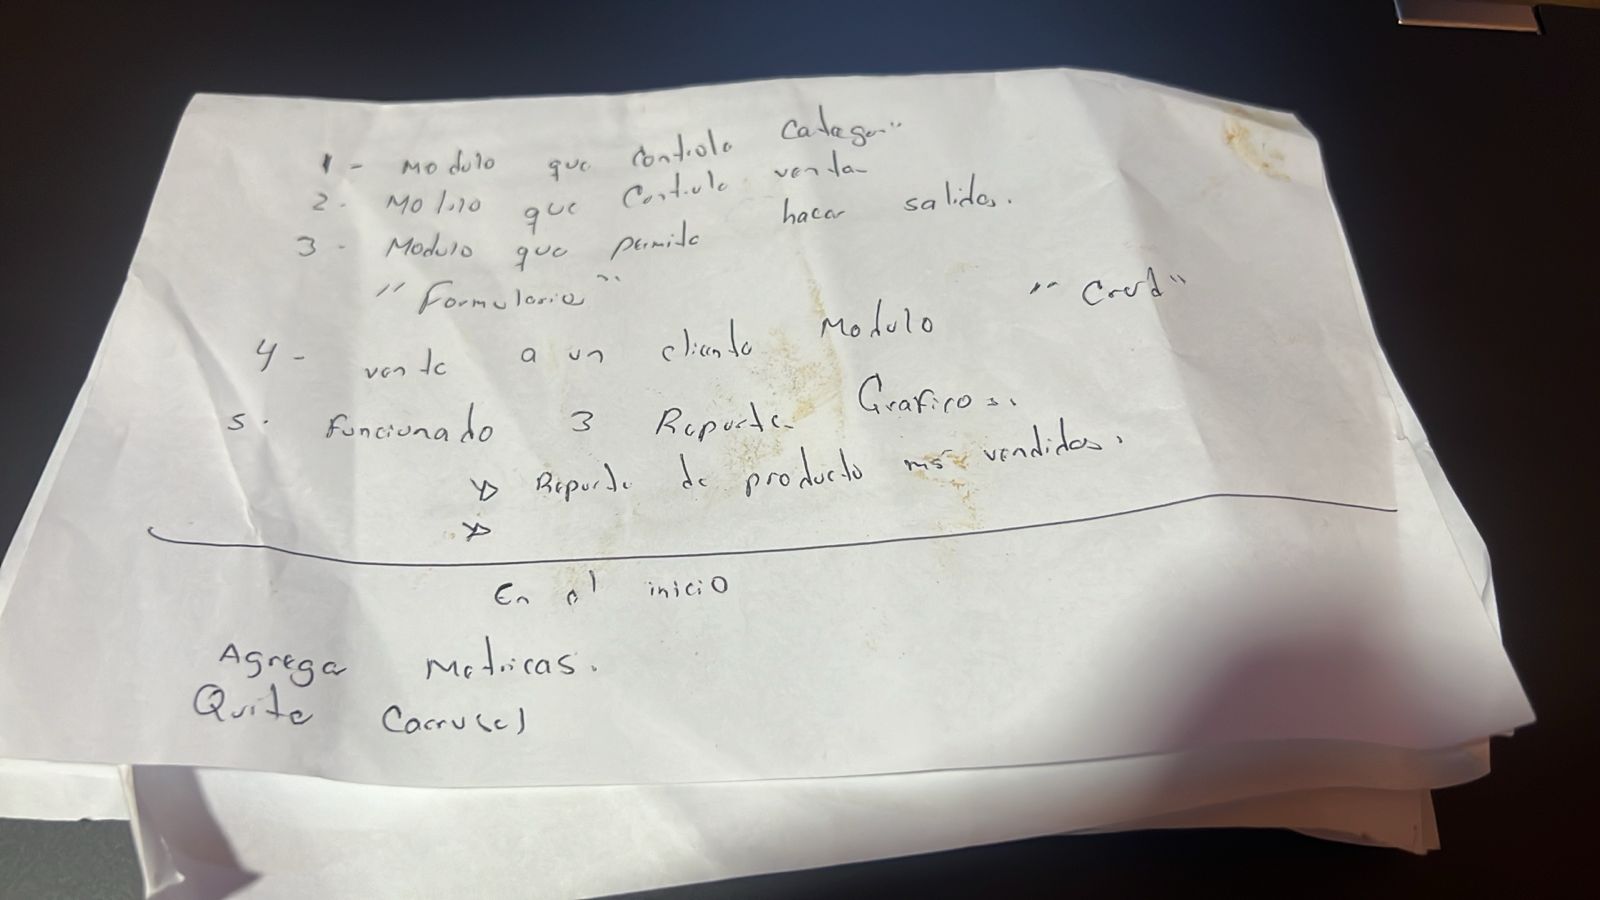 1 - Modulo que Controla Categor"
2. Modulo que Controla venta
3 - Modulo que permita hacer salidas.
"Formulario"
4 - venta a un cliente Modulo "Crud"
5. Funcionado 3 Reporte Graficos.
Reporte de producto ms vendidos.
En el inicio
Agregar Metricas.
Quite Carrusel